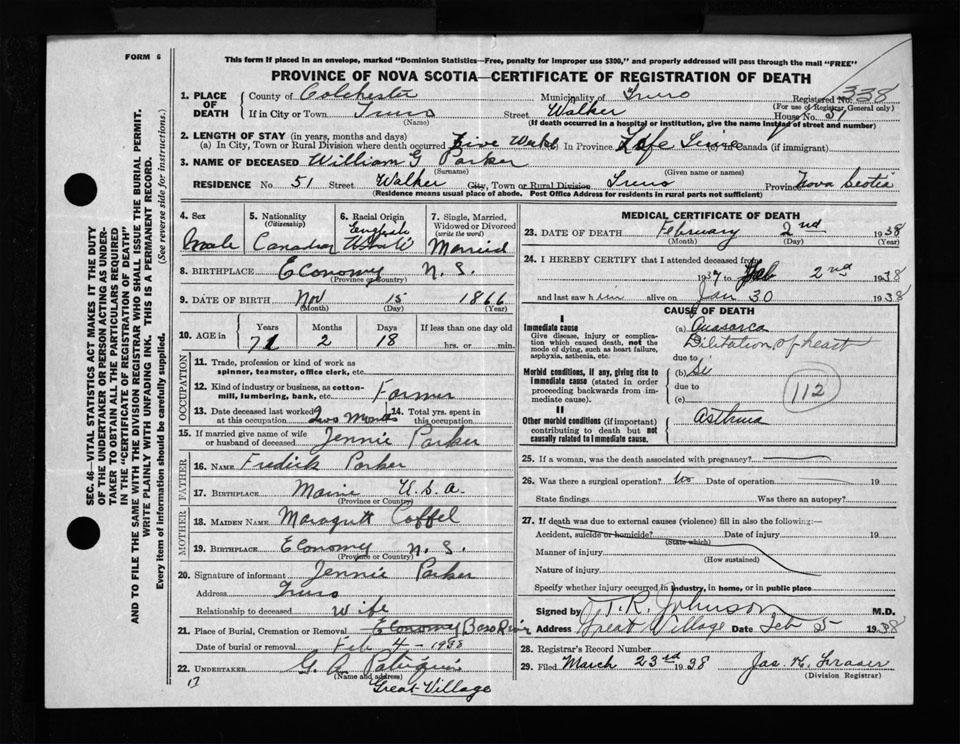 FORM 6
This form if placed in an envelope, marked "Dominion Statistics—Free, penalty for improper use $300," and properly addressed will pass through the mail "FREE"
PROVINCE OF NOVA SCOTIA—CERTIFICATE OF REGISTRATION OF DEATH
338
1. PLACE OF DEATH County of Colchester Municipality of Truro Registered No.
(For use of Registrar General only)
If in City or Town Truro (Name) Street Walker House No. 51
(If death occurred in a hospital or institution, give the name instead of street and number)
2. LENGTH OF STAY (in years, months and days)
(a) In City, Town or Rural Division where death occurred Five In Province Life Time (c) Canada (if immigrant)
3. NAME OF DECEASED William G Parker
(Surname) (Given name or names)
RESIDENCE No. 51 Street Walker City, Town or Rural Division Truro Province Nova Scotia
(Residence means usual place of abode. Post Office Address for residents in rural parts not sufficient)
4. Sex 5. Nationality (Citizenship) 6. Racial Origin 7. Single, Married, Widowed or Divorced (write the word)
Male Canadian English Married
8. BIRTHPLACE Economy N. S.
(Province or Country)
9. DATE OF BIRTH Nov 15 1866
(Month) (Day) (Year)
10. AGE in Years Months Days If less than one day old
71 2 18 hrs. or min.
OCCUPATION
11. Trade, profession or kind of work as spinner, teamster, office clerk, etc.
12. Kind of industry or business, as cotton-mill, lumbering, bank, etc. Farmer
13. Date deceased last worked at this occupation Two Months 14. Total yrs. spent in this occupation
15. If married give name of wife or husband of deceased Jennie Parker
FATHER
16. NAME Fredick Parker
17. BIRTHPLACE Maine U.S.A.
(Province or Country)
MOTHER
18. MAIDEN NAME Coffel
19. BIRTHPLACE Economy N. S.
(Province or Country)
20. Signature of informant Jennie Parker
Address Truro
Relationship to deceased Wife
21. Place of Burial, Cremation or Removal Economy Bass River
Date of burial or removal Feb 4 – 1938
22. UNDERTAKER G. A.
(Name and address)
Great Village
MEDICAL CERTIFICATE OF DEATH
23. DATE OF DEATH February 2nd 1938
(Month) (Day) (Year)
24. I HEREBY CERTIFY that I attended deceased from
1937 to Feb 2nd 1938
and last saw him alive on Jan 30 1938
CAUSE OF DEATH
I
Immediate cause (a) Anasarca
Give disease, injury or complication which caused death, not the mode of dying, such as heart failure, asphyxia, asthenia, etc.
Dilitation of heart
due to
Morbid conditions, if any, giving rise to immediate cause (stated in order proceeding backwards from immediate cause). (b)
due to
(c)
112
II
Other morbid conditions (if important) contributing to death but not causally related to immediate cause.
Asthma
25. If a woman, was the death associated with pregnancy?
26. Was there a surgical operation? No Date of operation 19
State findings Was there an autopsy?
27. If death was due to external causes (violence) fill in also the following:—
Accident, suicide or homicide? Date of injury 19
(State which)
Manner of injury
(How sustained)
Nature of injury
Specify whether injury occurred in industry, in home, or in public place
Signed by T. R. Johnson M.D.
Address Great Village Date Feb 5 1938
28. Registrar's Record Number
29. Filed March 23rd 1938 Jas. H. Fraser
(Division Registrar)
SEC. 46—VITAL STATISTICS ACT MAKES IT THE DUTY
OF THE UNDERTAKER OR PERSON ACTING AS UNDERTAKER TO OBTAIN ALL THE PARTICULARS REQUIRED
IN THE "CERTIFICATE OF REGISTRATION OF DEATH"
AND TO FILE THE SAME WITH THE DIVISION REGISTRAR WHO SHALL ISSUE THE BURIAL PERMIT.
WRITE PLAINLY WITH UNFADING INK. THIS IS A PERMANENT RECORD.
Every item of information should be carefully supplied. (See reverse side for instructions.)